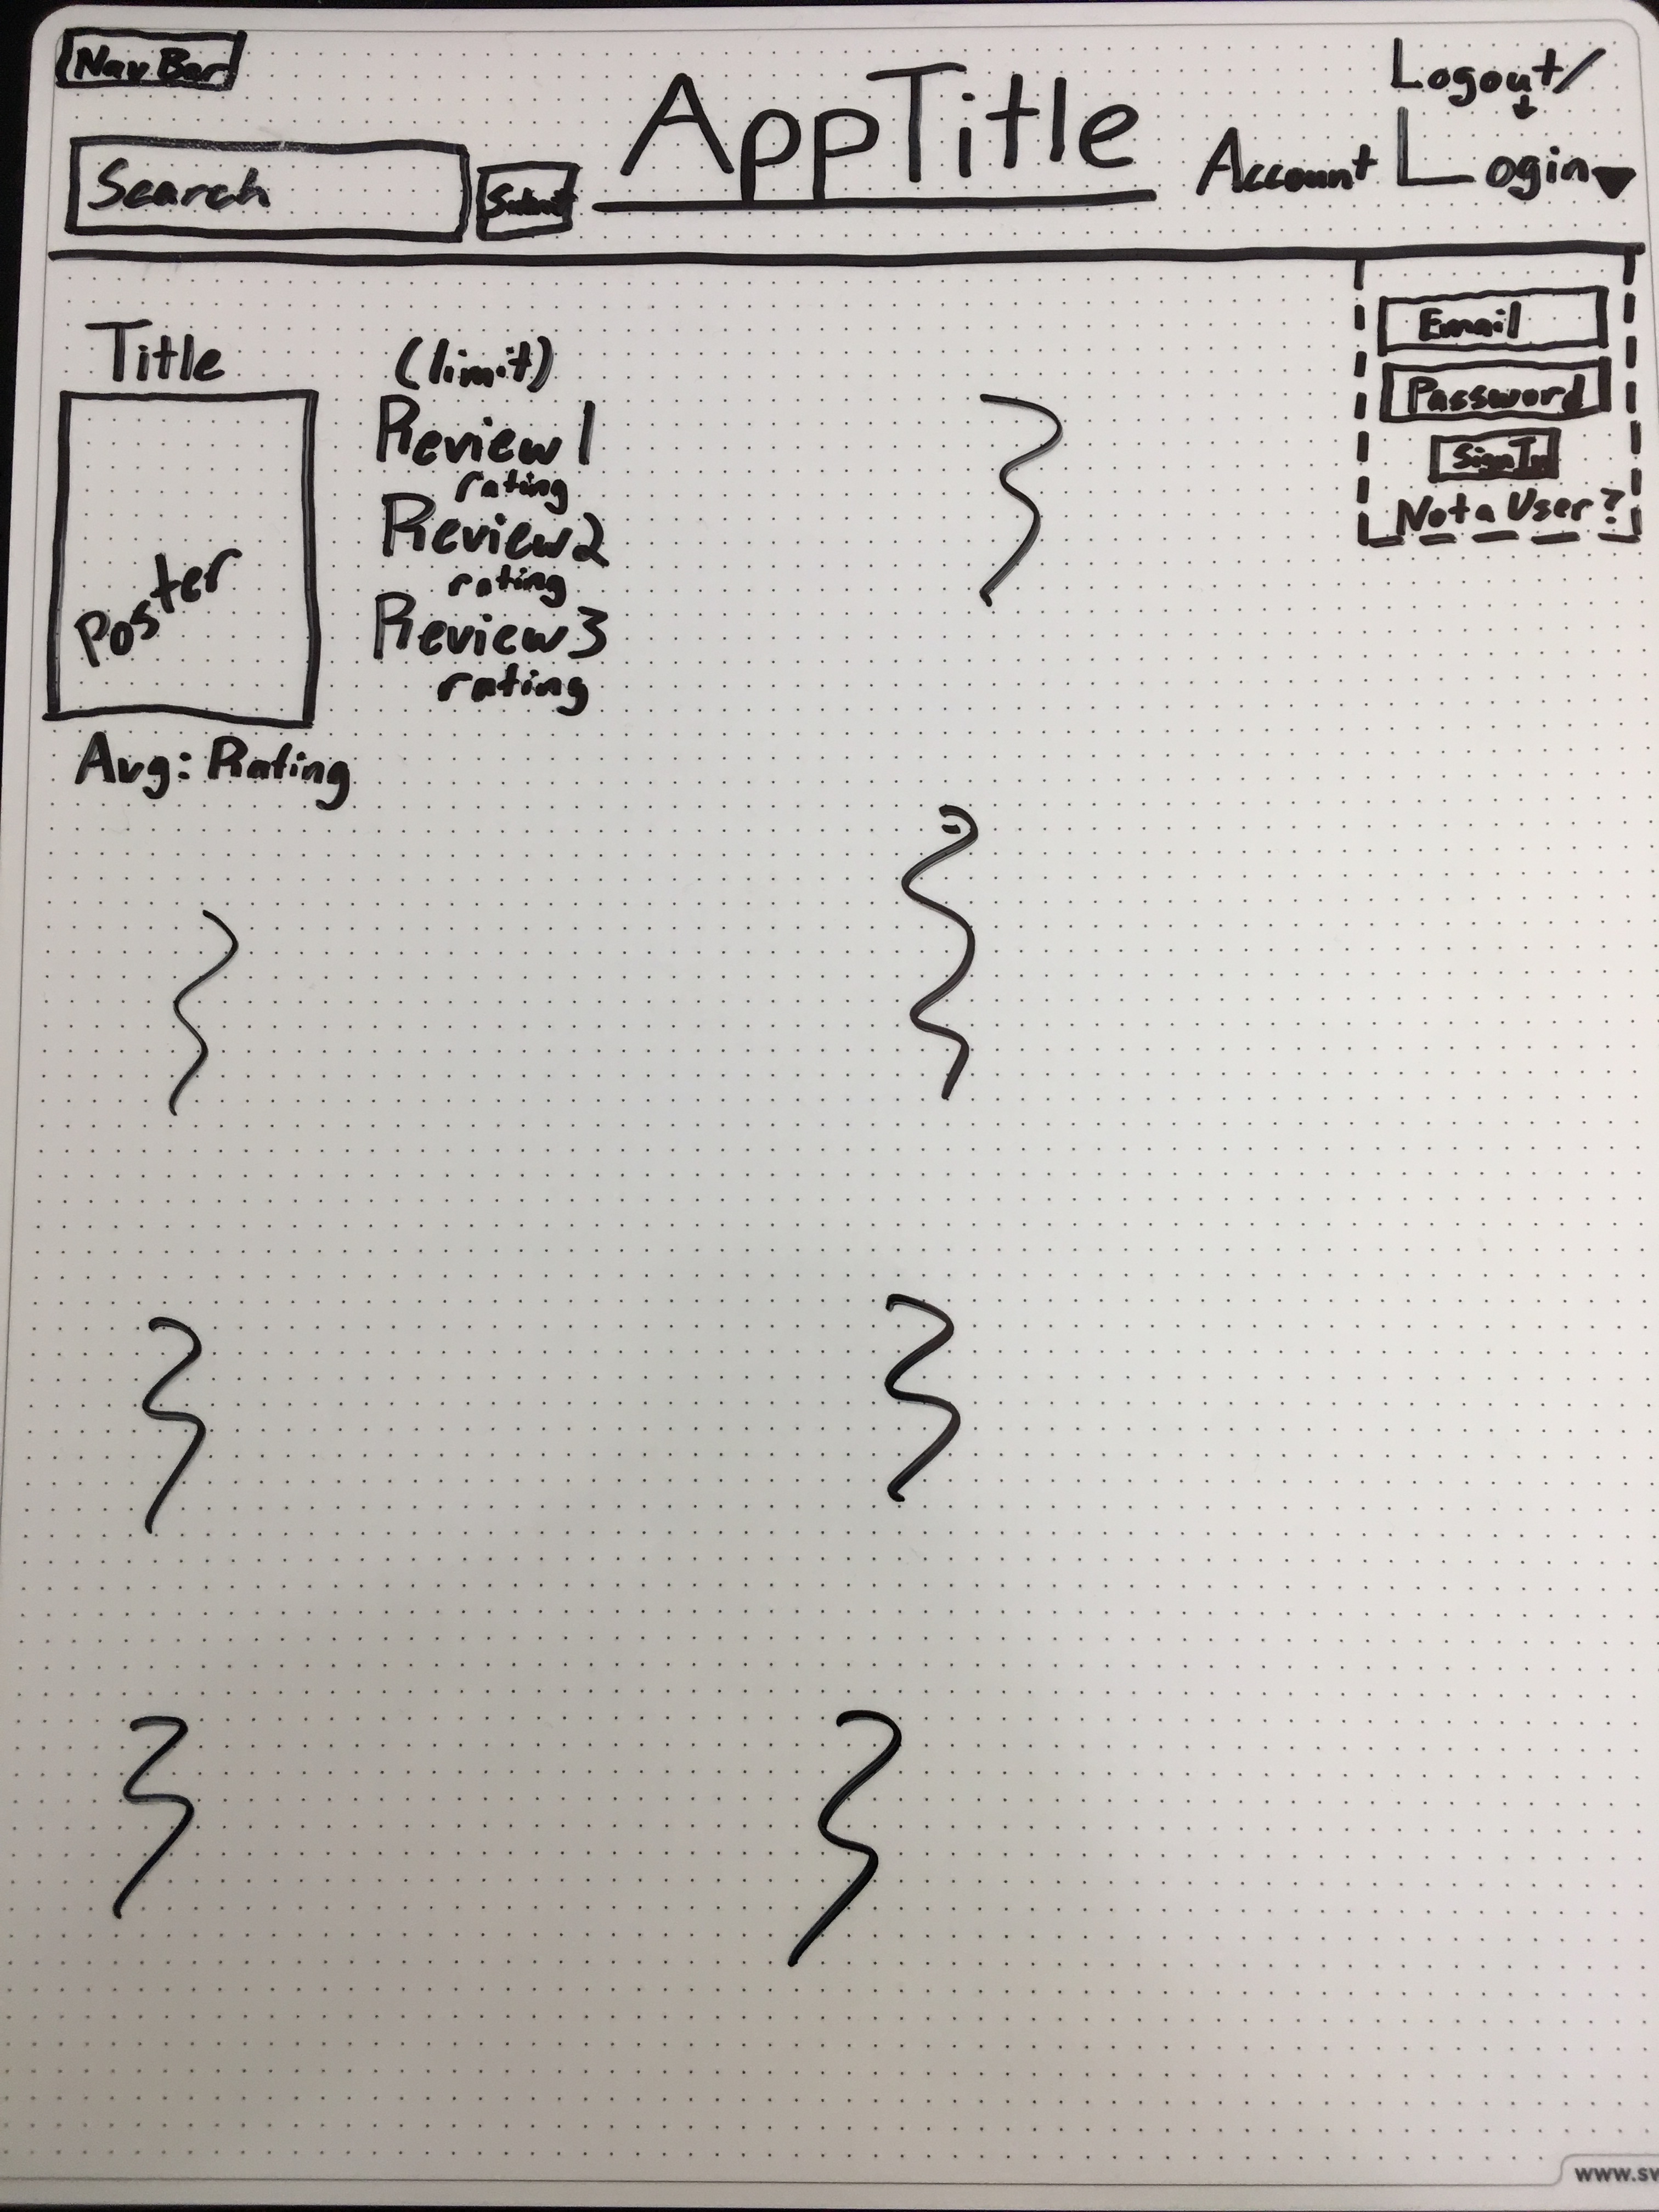 Nav Bar
Search
Submit
AppTitle
Account
Logout/
Login
Email
Password
Sign In
Not a User?
Title
Poster
Avg: Rating
(limit)
Review1
rating
Review2
rating
Review3
rating